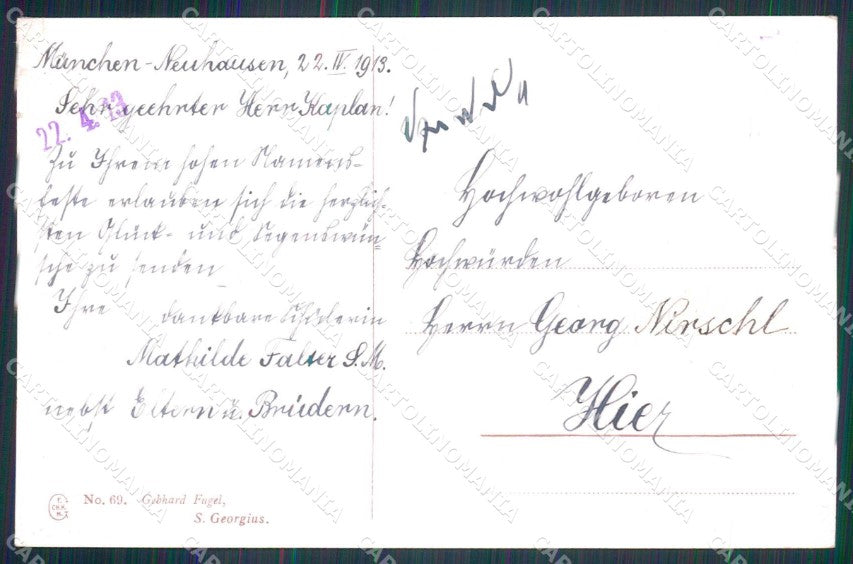 München-Neuhausen, 22. IV. 1913.
Sehr geehrter Herr Kaplan!
22. 4. 13
Zu Ihrem hohen Namens-
feste erlauben sich die herzlich-
sten Glück- und Segenswün
sche zu senden
Ihre dankbare Schülerin
Mathilde Falter S.M.
nebst Eltern u. Brüdern.
Hochwohlgeboren
Hochwürden
Herrn Georg Nirschl
Hier
No. 69. Gebhard Fugel,
S. Georgius.
CARTOLINOMANIA